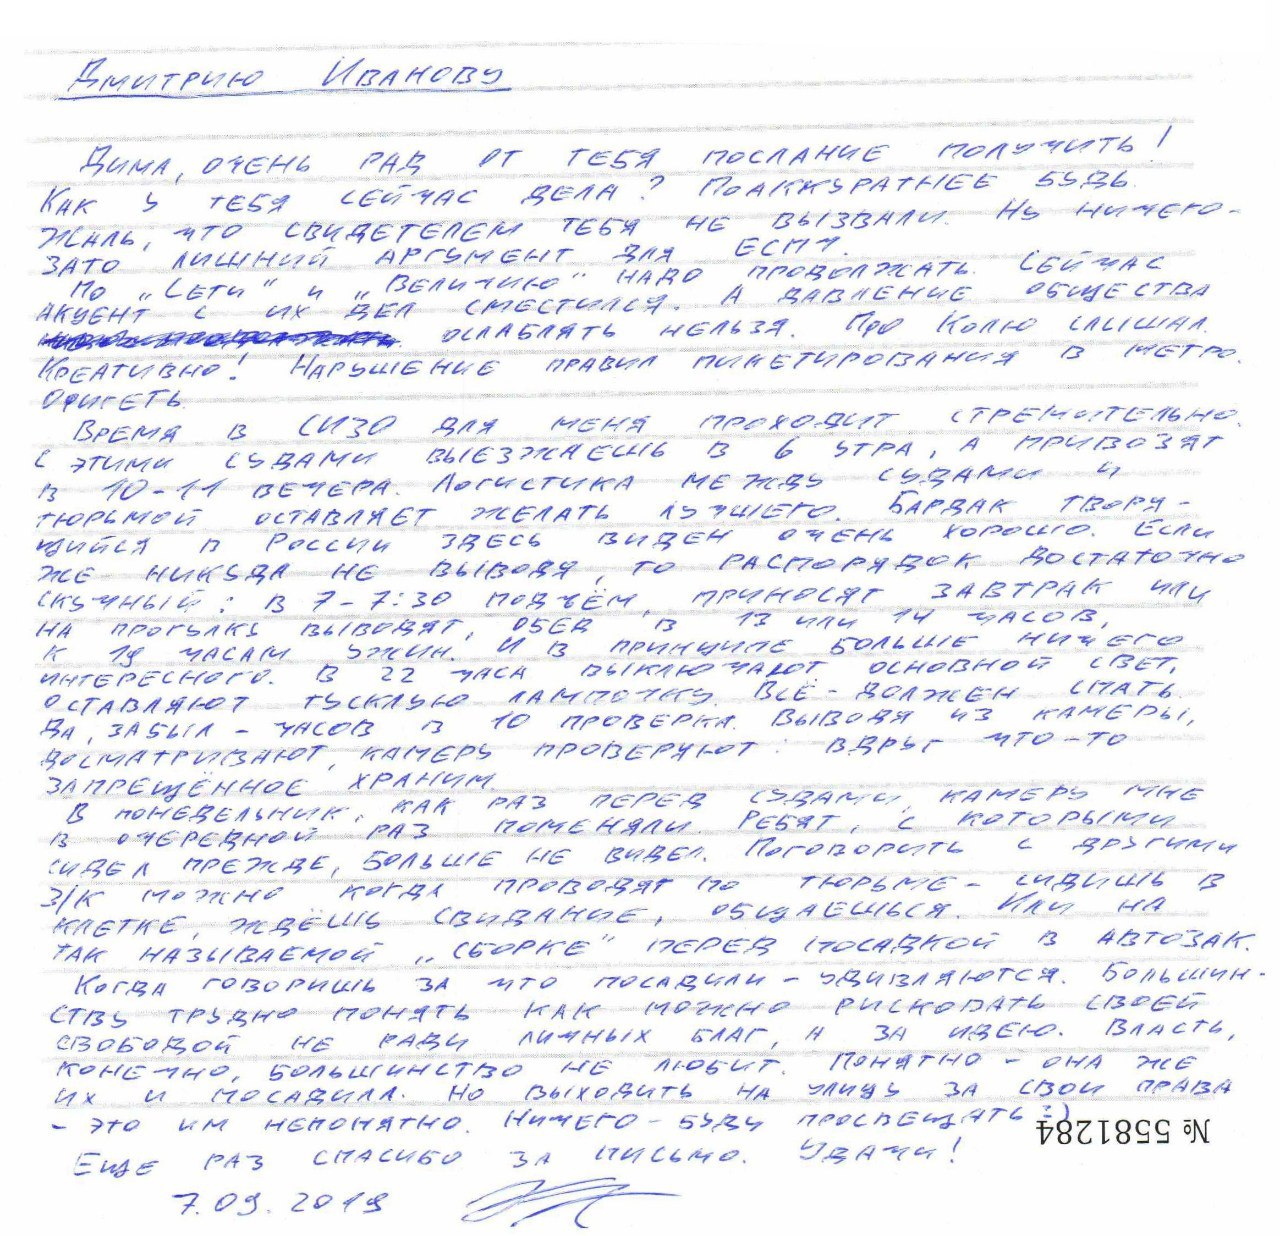 Дмитрию Иванову
Дима, очень рад от тебя послание получить!
Как у тебя сейчас дела? Поаккуратнее будь.
Жаль, что свидетелем тебя не вызвали. Ну ничего -
зато лишний аргумент для ЕСПЧ.
По „Сети" и „Величию" надо продолжать. Сейчас
акцент с их дел сместился. А давление общества
ослаблять нельзя. Про Колю слышал.
Креативно! Нарушение правил пикетирования в метро.
Офигеть.
Время в СИЗО для меня проходит стремительно.
С этими судами выезжаешь в 6 утра, а привозят
в 10-11 вечера. Логистика между судами и
тюрьмой оставляет желать лучшего. Бардак творя-
щийся в России здесь виден очень хорошо. Если
же никуда не выводя, то распорядок достаточно
скучный: в 7-7:30 подъём, приносят завтрак или
на прогулку выводят, обед в 13 или 14 часов,
к 19 часам ужин. И в принципе больше ничего
интересного. В 22 часа выключают основной свет,
оставляют тусклую лампочку. Всё - должен спать.
Да, забыл - часов в 10 проверка. Выводя из камеры,
досматривают, камеру проверяют: вдруг что-то
запрещённое храним.
В понедельник, как раз перед судами, камеру мне
в очередной раз поменяли. Ребят, с которыми
сидел прежде, больше не видел. Поговорить с другими
з/к можно когда проводят по тюрьме - сидишь в
клетке, ждёшь свидание, общаешься. Или на
так называемой „сборке" перед посадкой в автозак.
Когда говоришь за что посадили - удивляются. Большин-
ству трудно понять как можно рисковать своей
свободой не ради личных благ, а за идею. Власть,
конечно, большинство не любит. Понятно - она же
их и посадила. Но выходить на улицу за свои права
- это им непонятно. Ничего - буду просвещать :)
№ 5581284
Еще раз спасибо за письмо. Удачи!
7.09.2019